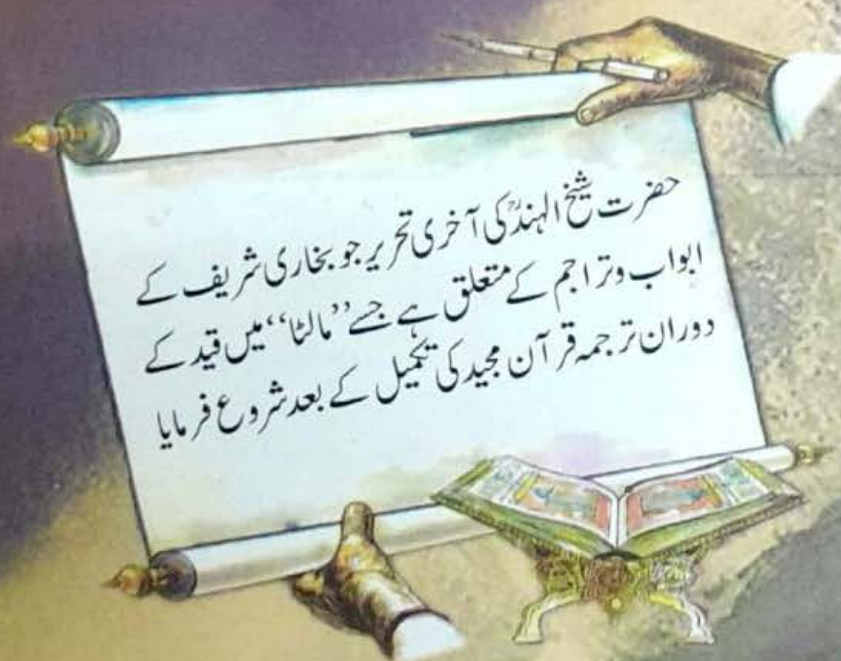 حضرت شیخ الہندؒ کی آخری تحریر جو بخاری شریف کے
ابواب وتراجم کے متعلق ہے جسے ”مالٹا“ میں قید کے
دوران ترجمہ قرآن مجید کی تکمیل کے بعد شروع فرمایا